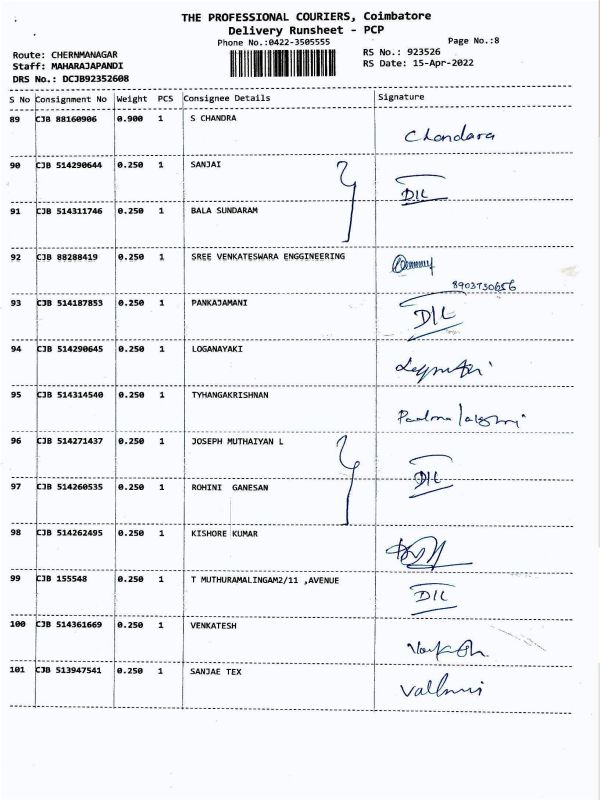 THE PROFESSIONAL COURIERS, Coimbatore
Delivery Runsheet - PCP
Phone No.:0422-3505555
Page No.:8
Route: CHERNMANAGAR
RS No.: 923526
Staff: MAHARAJAPANDI
RS Date: 15-Apr-2022
DRS No.: DCJB92352608
S No Consignment No Weight PCS Consignee Details Signature
89 CJB 88160906 0.900 1 S CHANDRA Chandara
90 CJB 514290644 0.250 1 SANJAI D/L
91 CJB 514311746 0.250 1 BALA SUNDARAM
92 CJB 88288419 0.250 1 SREE VENKATESWARA ENGGINEERING
8903730656
93 CJB 514187853 0.250 1 PANKAJAMANI D/L
94 CJB 514290645 0.250 1 LOGANAYAKI
95 CJB 514314540 0.250 1 TYHANGAKRISHNAN Padma lakshmi
96 CJB 514271437 0.250 1 JOSEPH MUTHAIYAN L D/L
97 CJB 514260535 0.250 1 ROHINI GANESAN
98 CJB 514262495 0.250 1 KISHORE KUMAR
99 CJB 155548 0.250 1 T MUTHURAMALINGAM2/11 ,AVENUE D/L
100 CJB 514361669 0.250 1 VENKATESH
101 CJB 513947541 0.250 1 SANJAE TEX